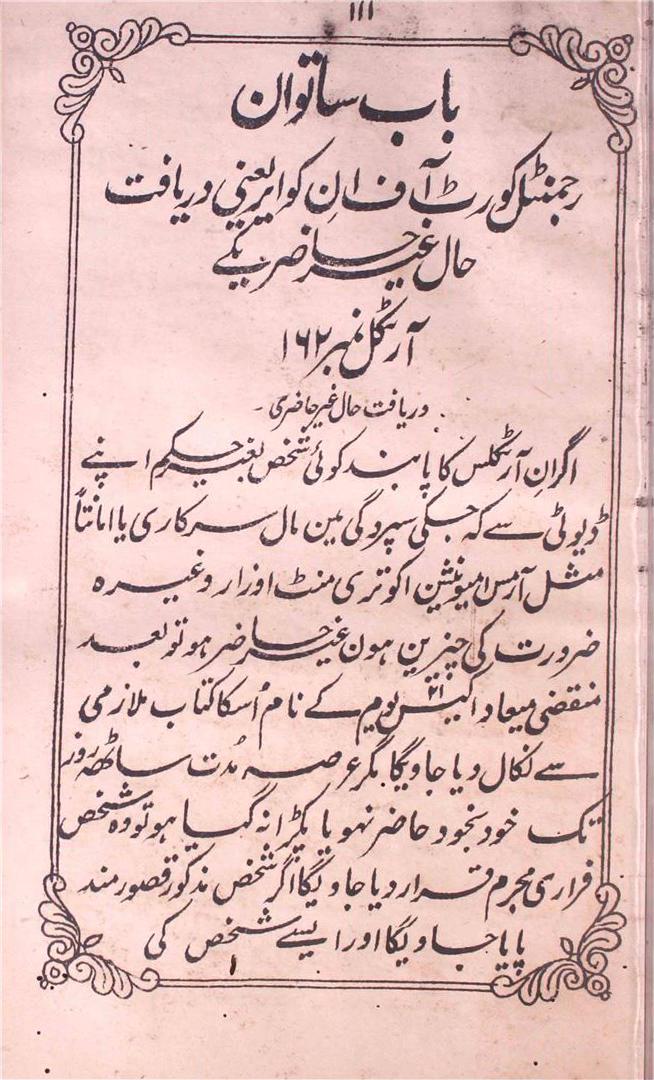 ۱۱۱
باب ساتوان
رجمنٹل کورٹ آف ان کوایر یعنی دریافت
حال غیر حاضر یکے
آرٹکل نمبر ۱۶۲
دریافت حال غیر حاضری -
اگر ان آرٹکلس کا پابند کوئی شخص بغیر حکم اپنے
ڈیوٹی سے کہ جسکی سپردگی مین مال سرکاری یا امانتاً
مثل آرمس امیونیشن اکوتری منٹ اوزار وغیرہ
ضرورت کی چیزین ہون غیر حاضر ہو تو بعد
منقضی میعاد اکیس ۲۱ یوم کے نام اُسکا کتاب ملازمی
سے نکال دیا جاویگا مگر عرصہ مُدت ساٹھہ روز
تک خود بخود حاضر نہو یا پکڑا نہ گیا ہو تو وہ شخص
فراری مجرم قرار دیا جاویگا اگر شخص مذکور قصور مند
پایا جاویگا اور ایسے شخص کی